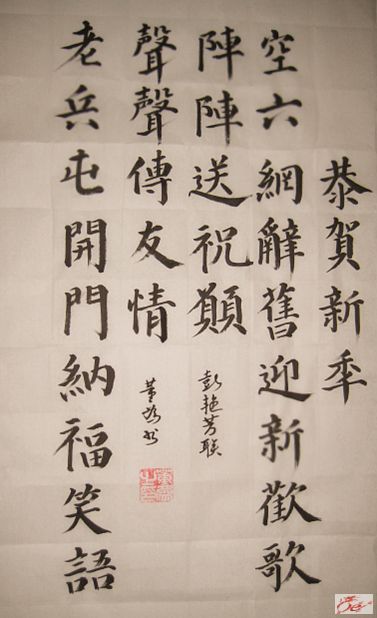 恭賀新年
空六網辭舊迎新歡歌
陣陣送祝願
彭艳芳联
聲聲傳友情
老兵屯開門納福笑語